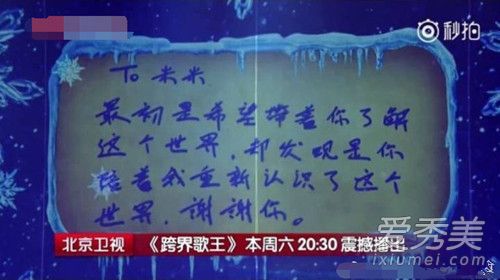 秒拍
To 米米
最初是希望带着你了解
这个世界，却发现是你
陪着我重新认识了这个
世界，谢谢你。
北京卫视 《跨界歌王》本周六 20:30 震撼播出
爱秀美
ixiumei.com